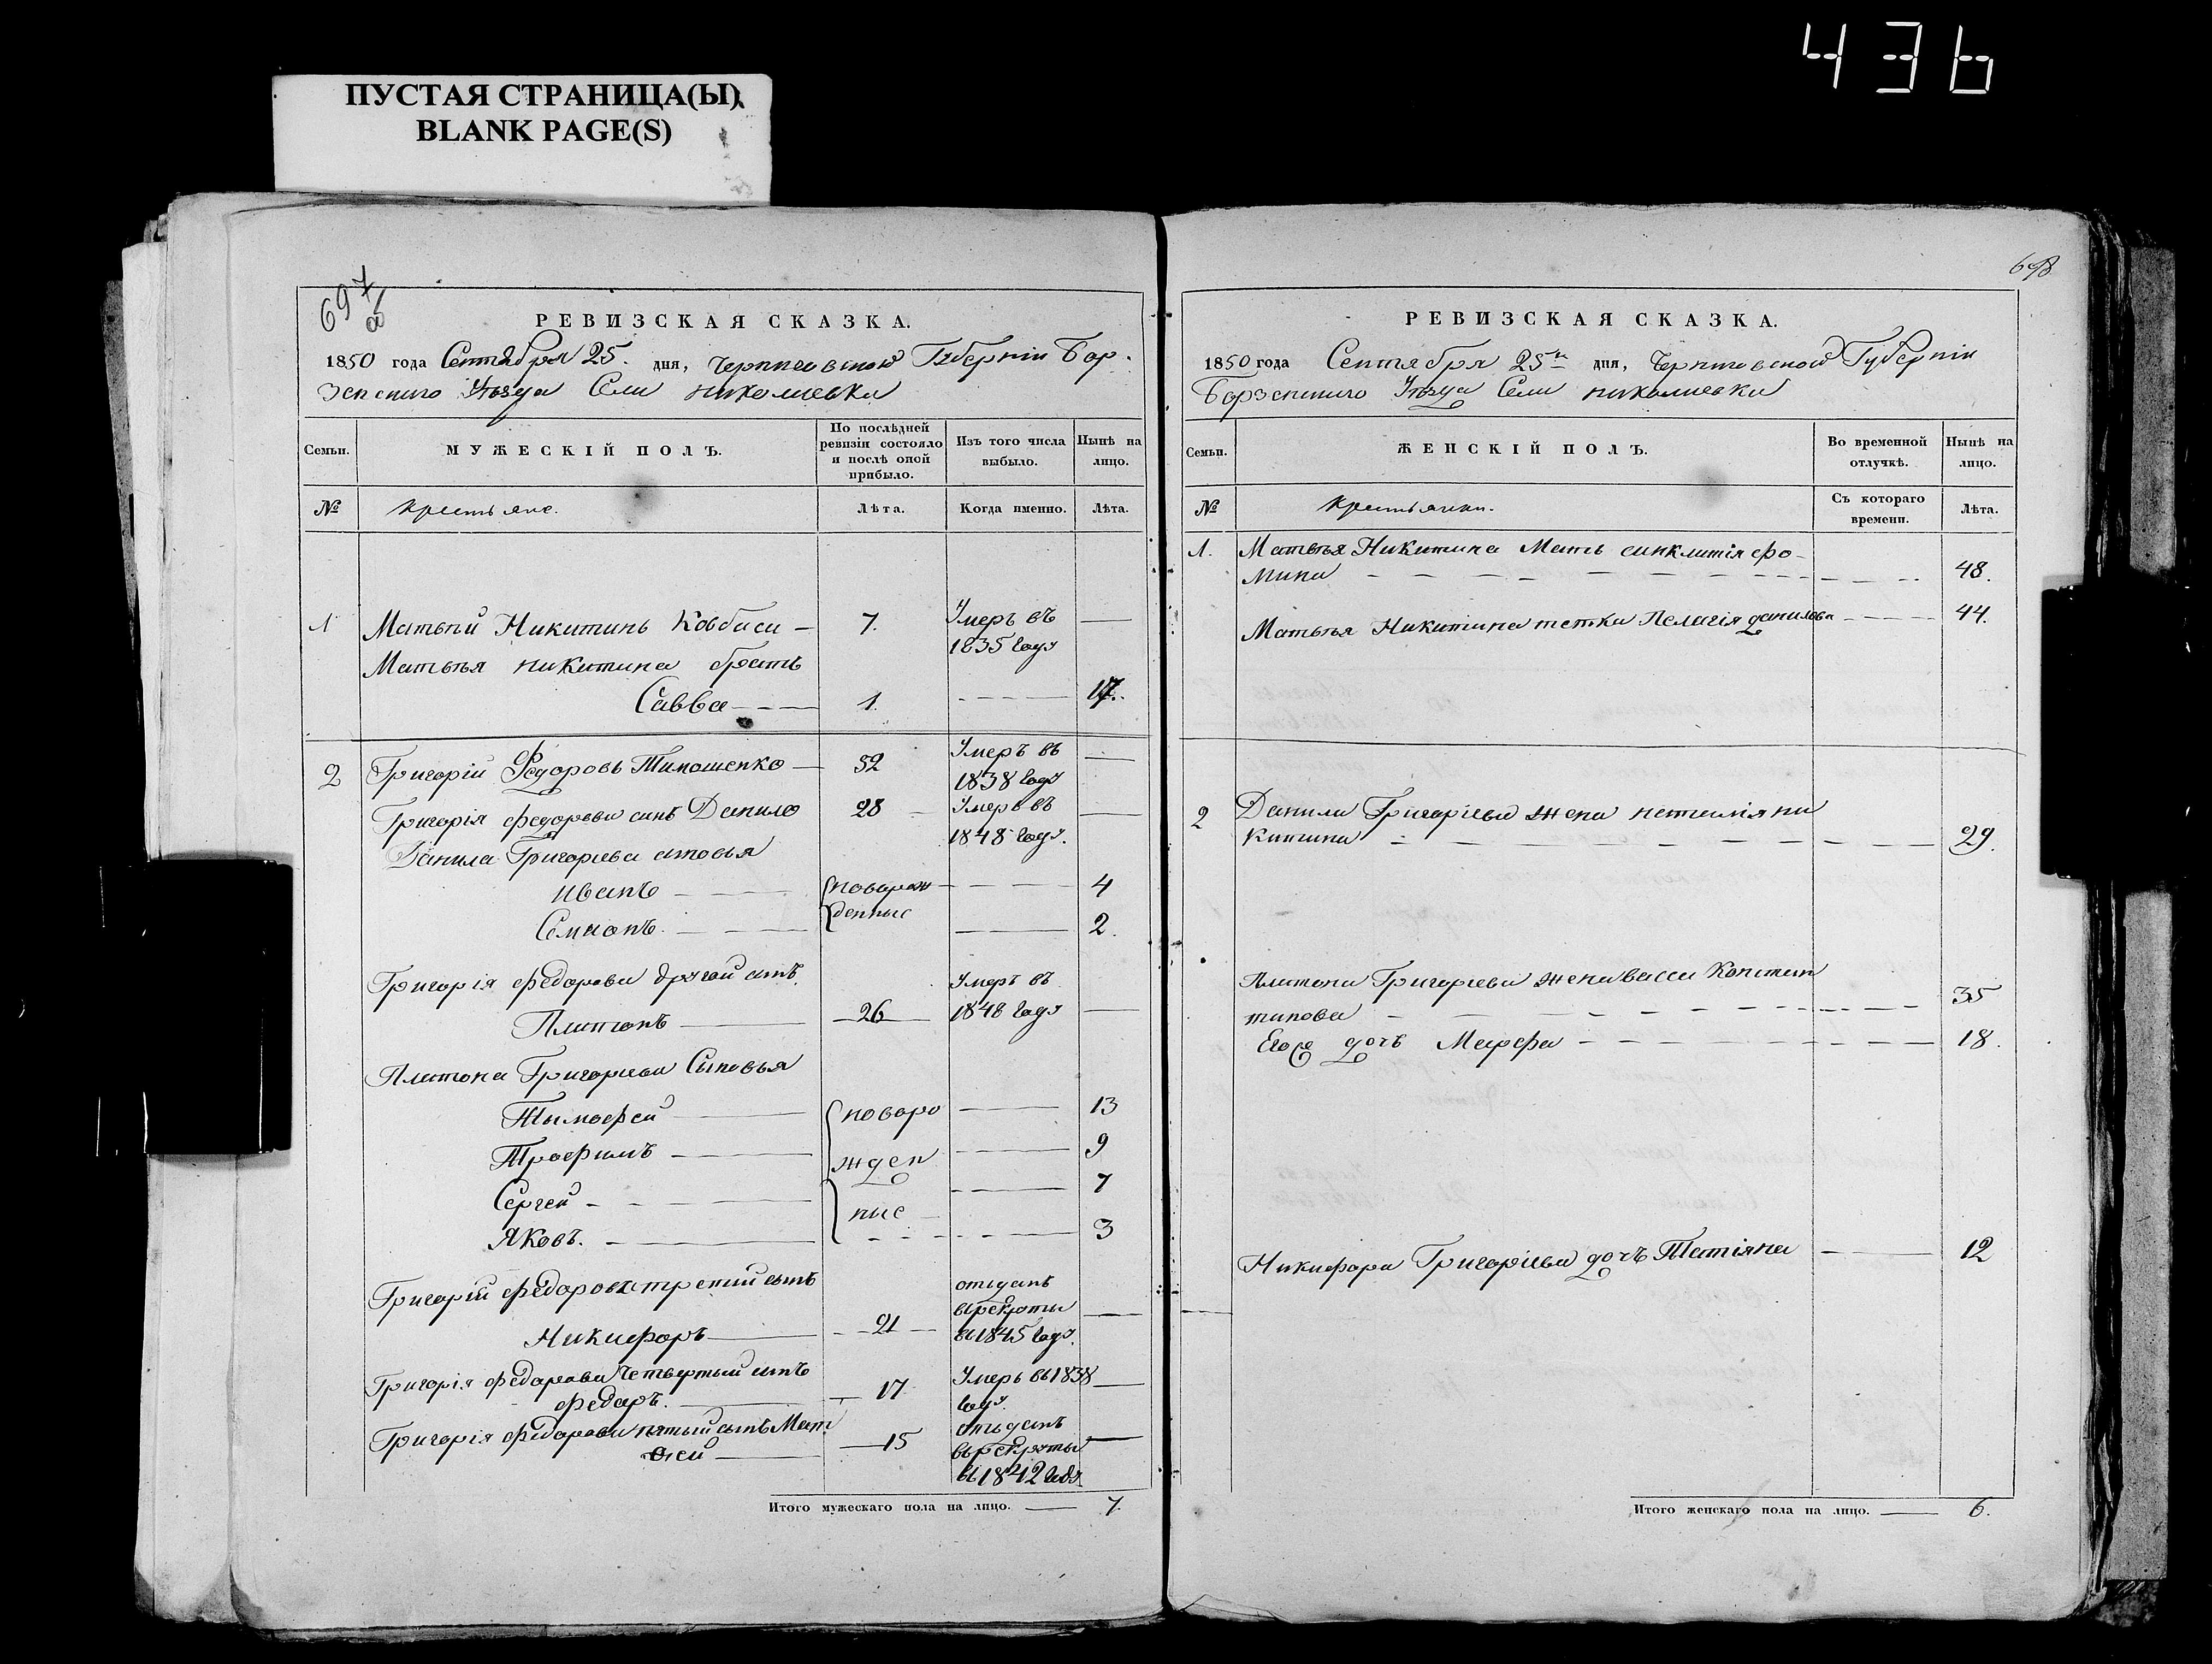 436
ПУСТАЯ СТРАНИЦА(Ы)
BLANK PAGE(S)
697
об
РЕВИЗСКАЯ СКАЗКА.
1850 года Сентября 25. дня, Черниговской Губерніи Бор-
зенского Уѣзда Села николаевки
Семьи.
МУЖЕСКІЙ ПОЛЪ.
По послѣдней
ревизіи состояло
и послѣ оной
прибыло.
Изъ того числа
выбыло.
Нынѣ на
лицо.
№
крестьяне.
Лѣта.
Когда именно.
Лѣта.
1 Матвѣй Никитинъ Ковбаса — 7. Умеръ въ —
1835 году
Матвѣя никитина братъ
Савва — 1. — 17.
2 Григорій Федоровъ Тимошенко — 52 Умеръ въ —
1838 году
Григорія федорова синъ Данило 28 — Умеръ въ —
1848 году.
Данила Григорьева сыновья
иванъ — новорож — 4
Семионъ. — денные — 2.
Григорія федорова другой сынъ. Умеръ въ
Платонъ — 26 1848 году —
Платона Григорьева Сыновья
Тымофей — новоро — 13
Трофимъ — жден — 9
Сергей — 7
ные
Яковъ. — 3
Григорій федоровъ третий сынъ отданъ
въ рекруты
Никифоръ — 21 — въ 1845 году. —
Григорія федорова Четвертый сынъ 17 Умеръ въ 1838 —
федаръ. — году.
Григорія федорова пятый сынъ Мат — 15 отданъ —
фей — въ рекруты
въ 1842 году
Итого мужескаго пола на лицо. — 7.
698
РЕВИЗСКАЯ СКАЗКА.
1850 года Сентября 25го дня, Черниговской Губерніи
Борзенского Уѣзда Села николаевки
Семьи.
ЖЕНСКІЙ ПОЛЪ.
Во временной
отлучкѣ.
Нынѣ на
лицо.
№
крестьянки.
Съ котораго
времени.
Лѣта.
1. Матвѣя Никитина Мать синклитія фо-
мина — 48.
Матвѣя Никитина тетка Пелагія данилова — 44.
2 Данила Григорьева жена
29.
Платона Григорьева жена васса Констан
тинова — 35
Егоже дочь Марфа — 18.
Никифора Григорьева дочь Татіяна — 12
Итого женскаго пола на лицо. — 6.